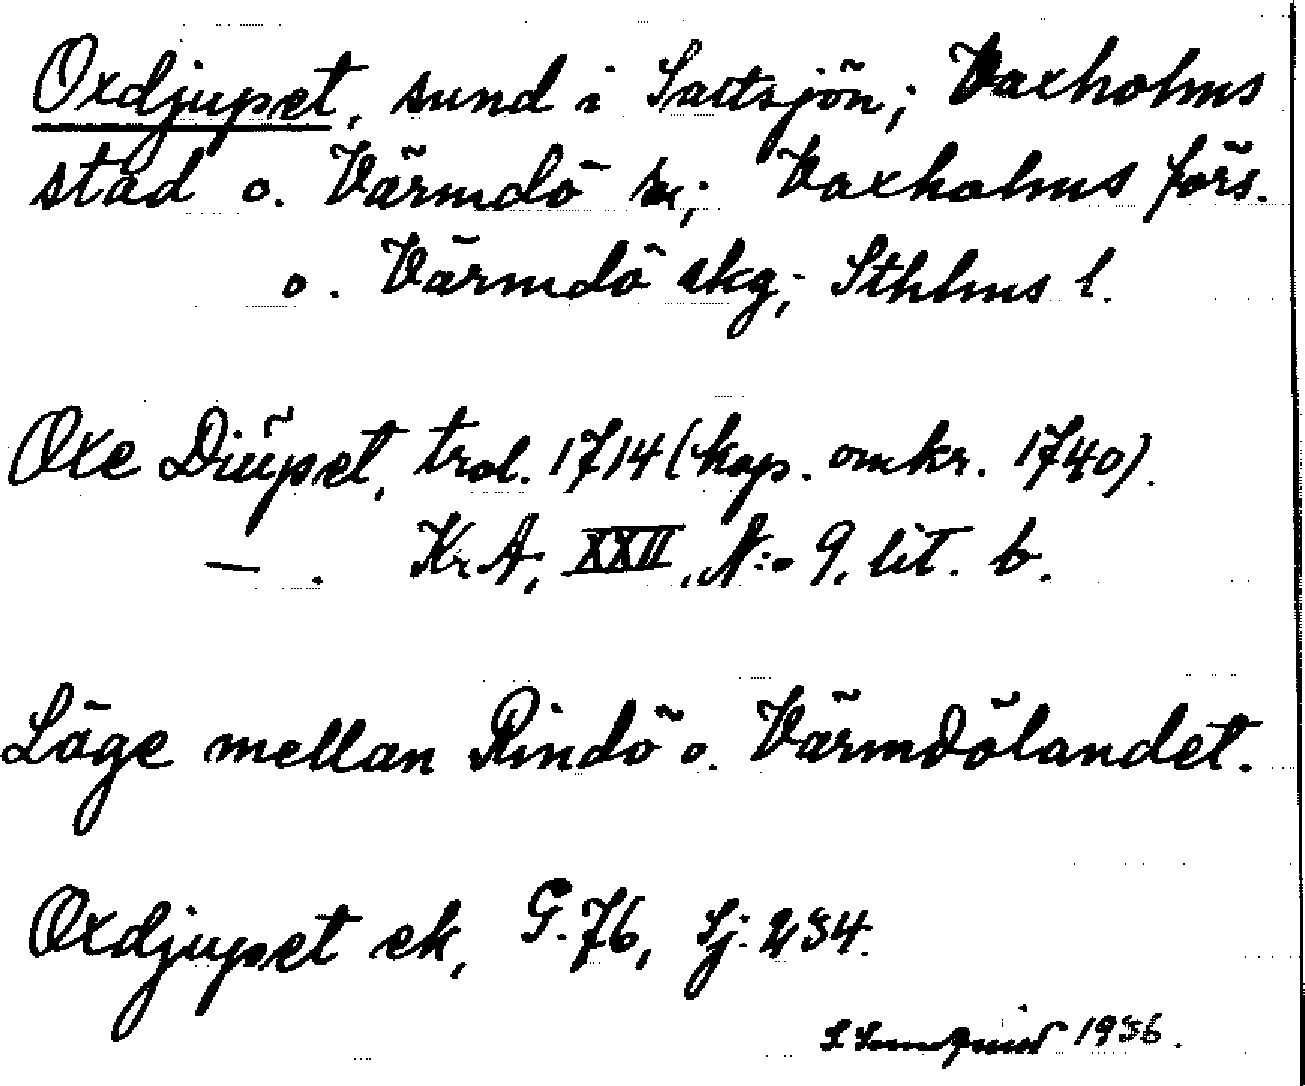 Oxdjupet, sund i Saltsjön; Vaxholms
stad o. Värmdö sn; Vaxholms förs.
o. Värmdö skg; Sthlms l.
Oxe Diüpet, trol. 1714 (kop. omkr. 1740).
— . Kr.A; XXII, N:o 9. lit. b.
Läge mellan Rindö o. Värmdölandet.
Oxdjupet ek, G.76, Sj: 234.
1936.